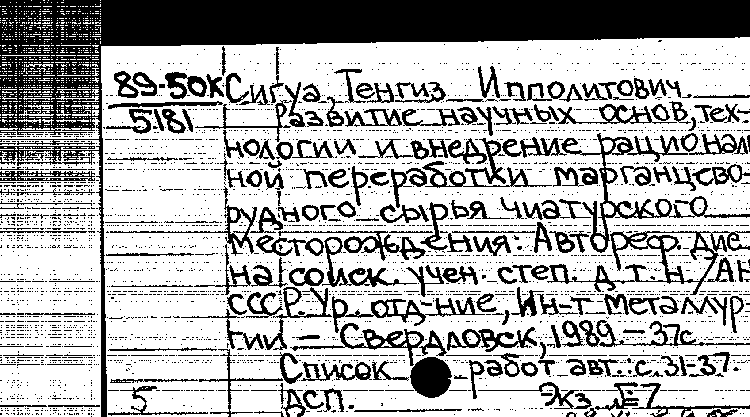 89-50К Сигуа, Тенгиз Ипполитович.
5181 Развитие научных основ, тех-
нологии и внедрение рационал
ной переработки марганцево-
рудного сырья чиатурского
месторождения: Автореф. дис.
на соиск. учен. степ. д.т.н. / АН
СССР. Ур. отд-ние, Ин-т металлур-
гии — Свердловск, 1989. — 37с.
Список работ авт.: с. 31-37.
5 ДСП. Экз. №7